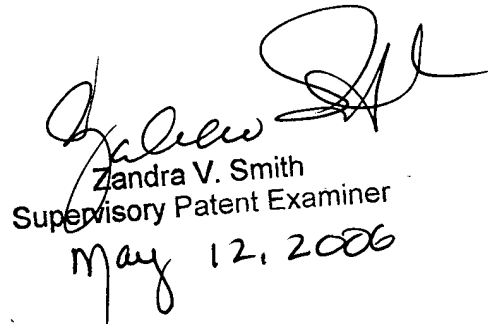 Zandra V. Smith
Supervisory Patent Examiner
May 12, 2006